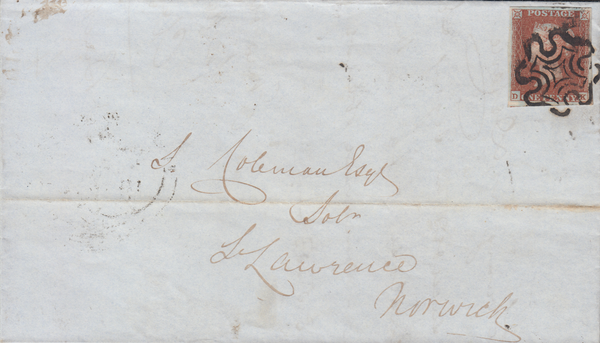 POSTAGE
D
S. Coleman Esqr
Solr
St Lawrence
Norwich